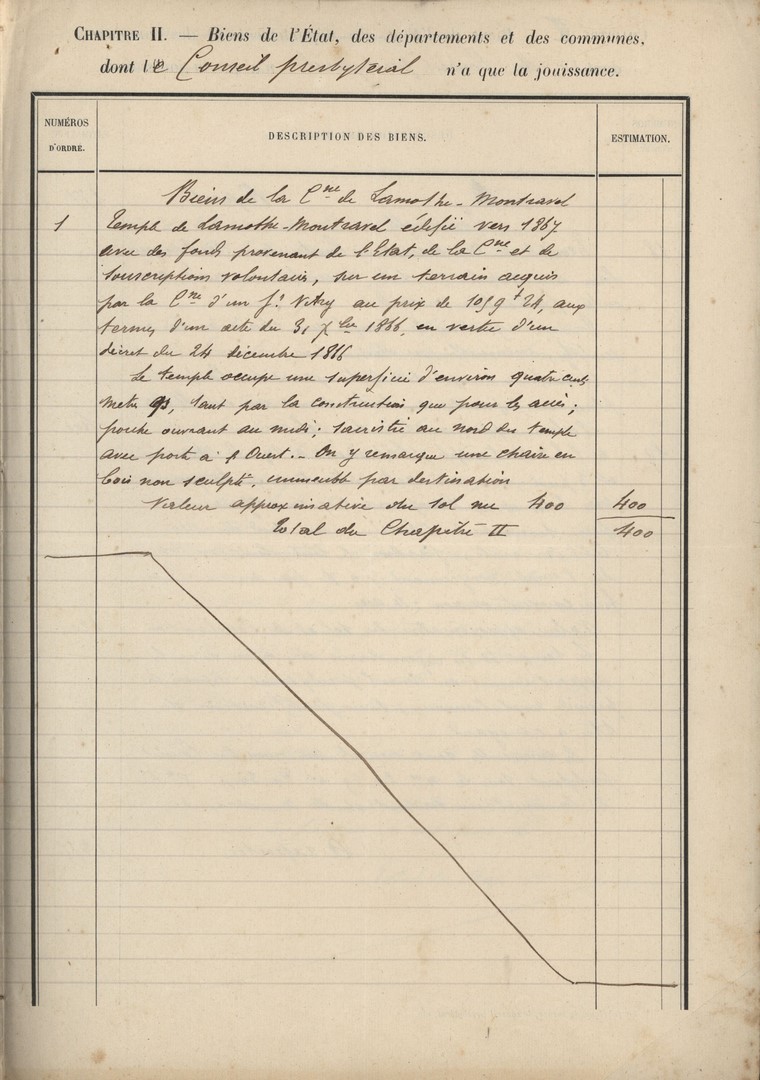 CHAPITRE II. — Biens de l'État, des départements et des communes,
dont le Conseil presbytéral n'a que la jouissance.
NUMÉROS D'ORDRE.
DESCRIPTION DES BIENS.
ESTIMATION.
Biens de la Cne de Lamothe-Montravel
1 Temple de Lamothe-Montravel édifié vers 1867
avec des fonds provenant de l'Etat, de la Cne et de
souscriptions volontaires, sur un terrain acquis
par la Cne d'un Sr Vitry au prix de 1059f 24, aux
termes d'un acte du 31 Xbre 1866, en vertu d'un
décret du 24 décembre 1866
Le temple occupe une superficie d'environ quatre cents
mètres qs, tant par la construction que pour les accès;
porche ouvrant au midi; sacristie au nord du temple
avec porte à l'Ouest.- On y remarque une chaire en
bois non sculpté, immeuble par destination
Valeur approximative du sol nu 400 400
Total du Chapitre II 400